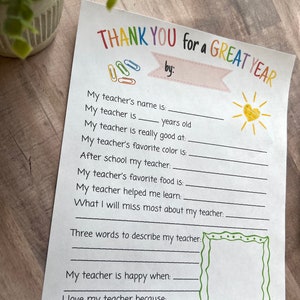 THANK YOU for a GREAT YEAR
by:
My teacher's name is:
My teacher is years old
My teacher is really good at:
My teacher's favorite color is:
After school my teacher:
My teacher's favorite food is:
My teacher helped me learn
What I will miss most about my teacher:
Three words to describe my teacher:
My teacher is happy when:
I love my teacher because